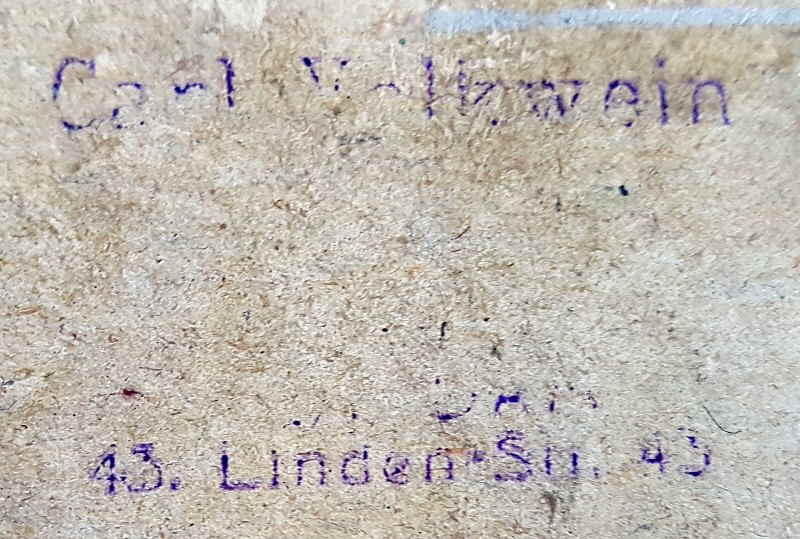 Carl Volkwein
43. Linden-Str. 43